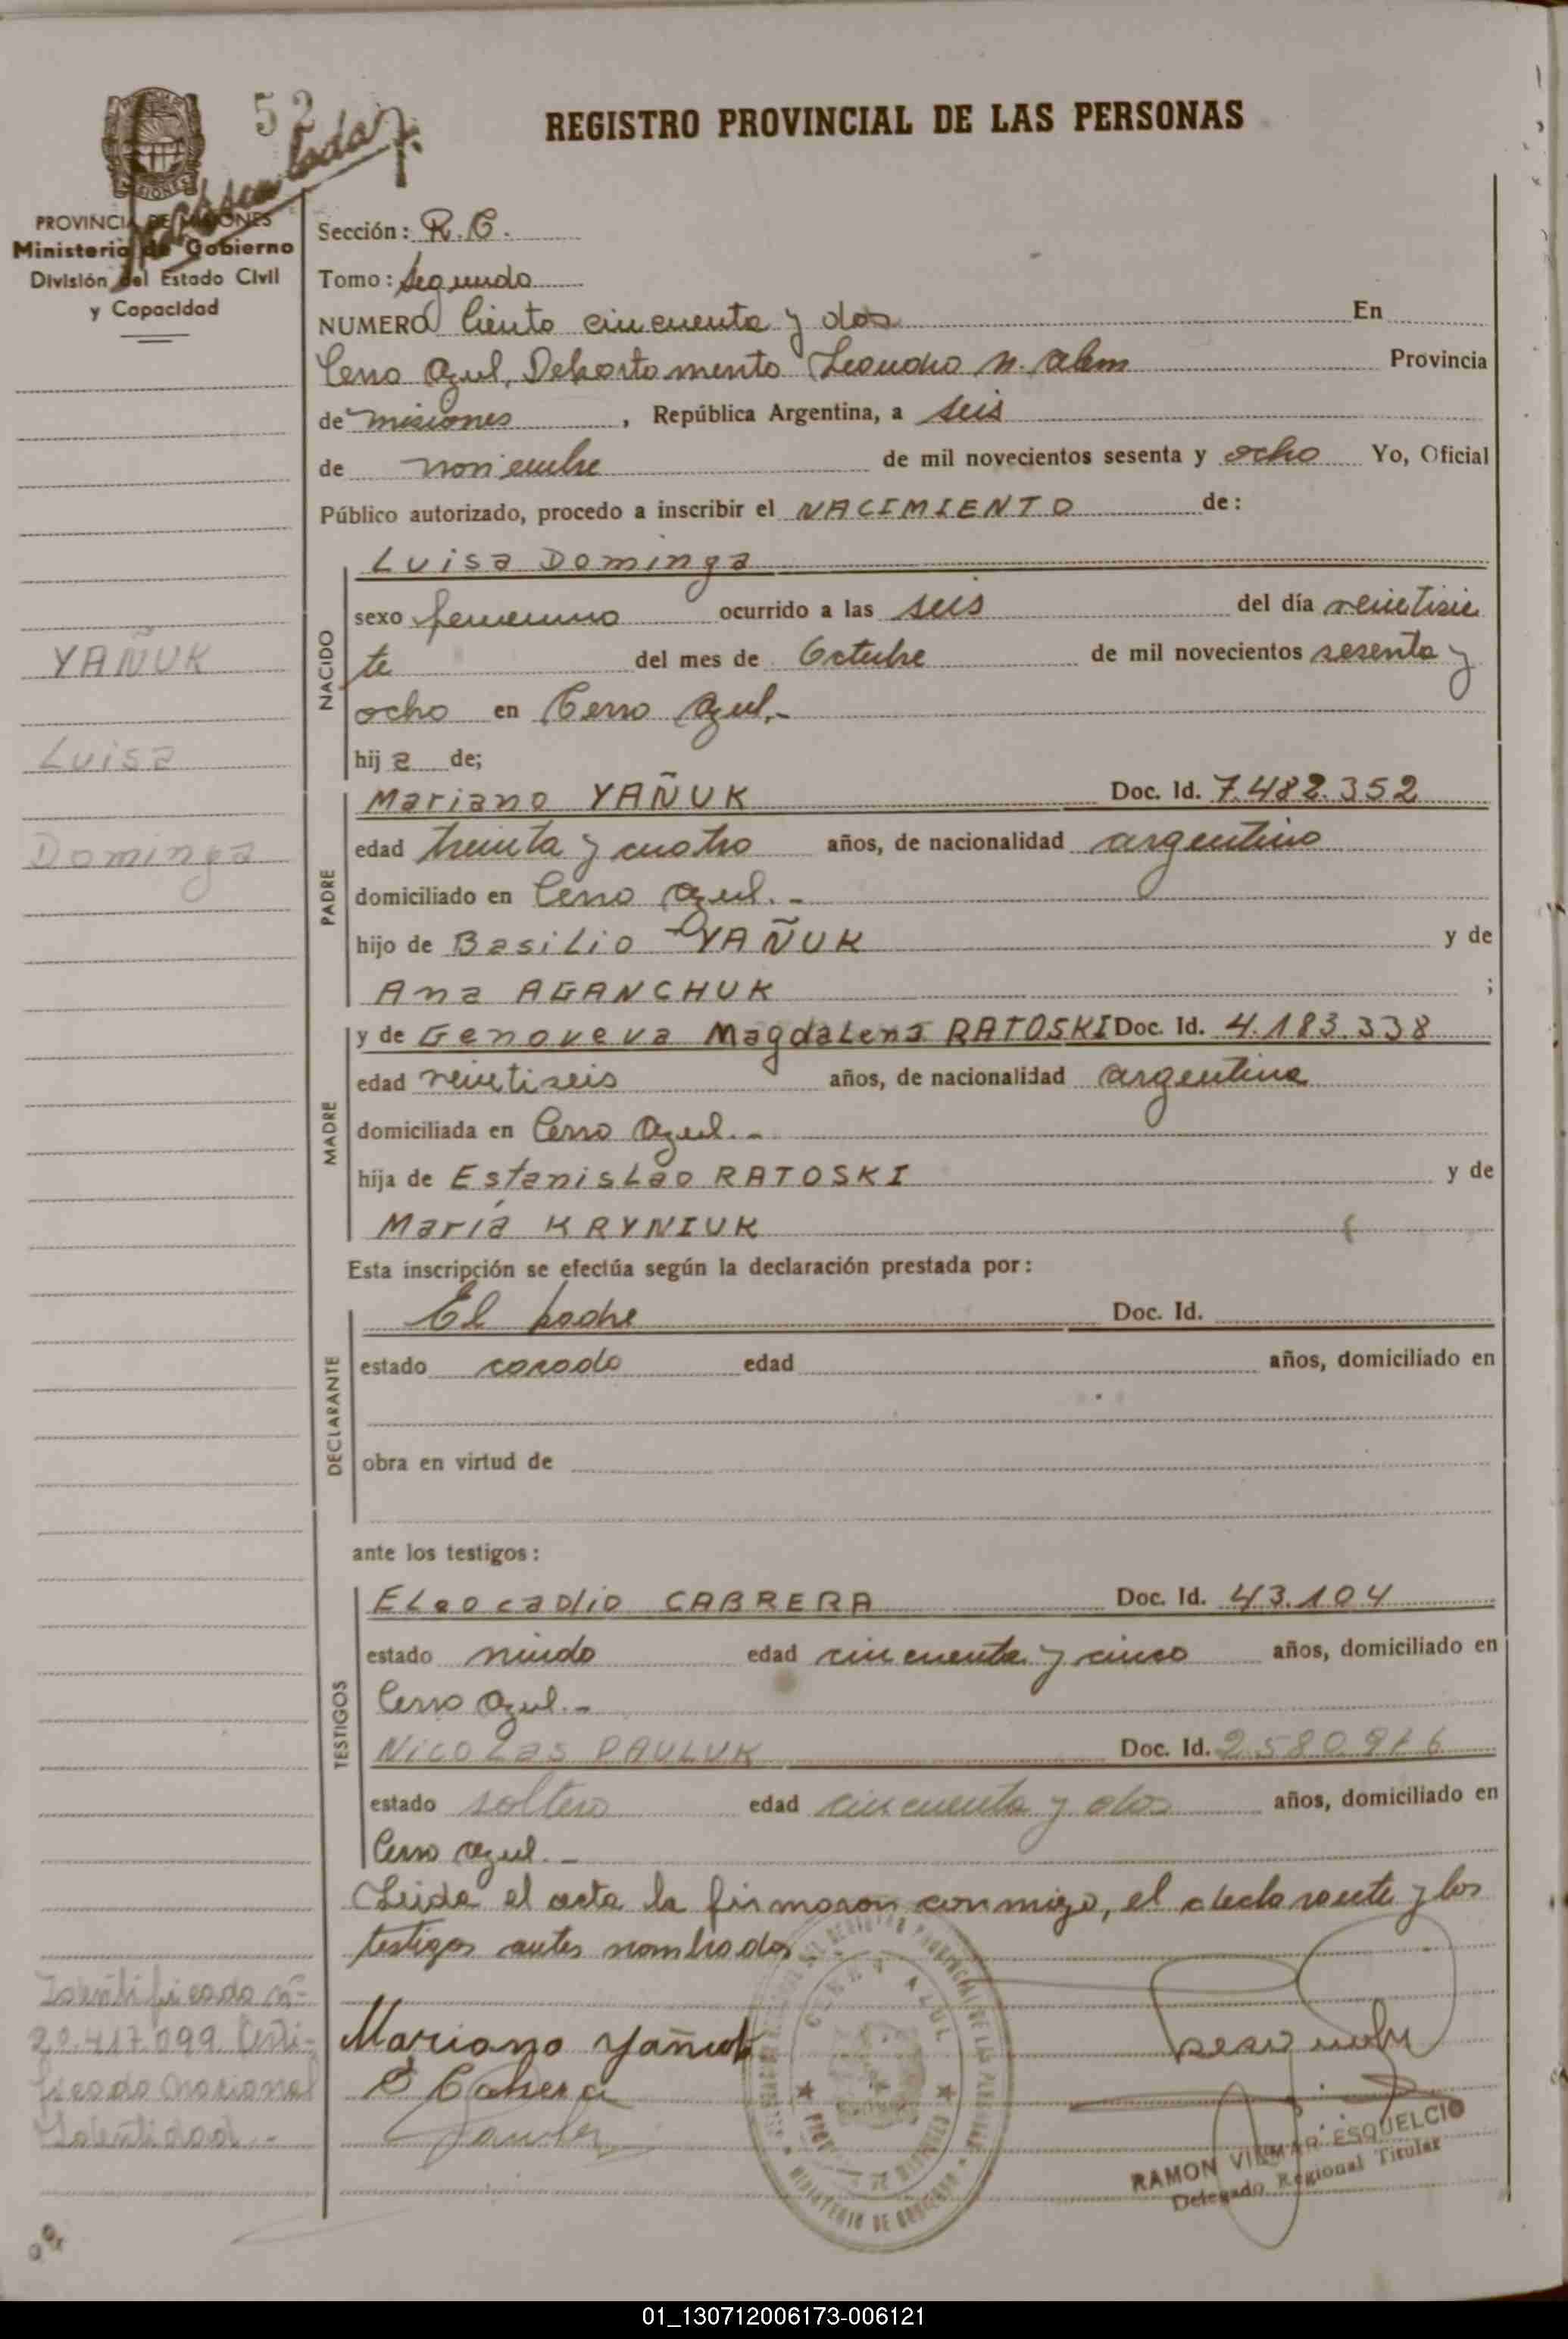 52
REGISTRO PROVINCIAL DE LAS PERSONAS
PROVINCIA DE MISIONES
Ministerio de Gobierno
División del Estado Civil
y Capacidad
Sección: R.C.
Tomo: Segundo
NUMERO Ciento cincuenta y dos En
Cerro Azul, Departamento Leandro N. Alem Provincia
de Misiones, República Argentina, a seis
de noviembre de mil novecientos sesenta y ocho Yo, Oficial
Público autorizado, procedo a inscribir el NACIMIENTO de:
NACIDO
Luisa Dominga
sexo femenino ocurrido a las seis del día veintisie
te del mes de Octubre de mil novecientos sesenta y
ocho en Cerro Azul.-
hija de;
YAÑUK
Luisa
Dominga
PADRE
Mariano YAÑUK Doc. Id. 7.482.352
edad treinta y cuatro años, de nacionalidad argentino
domiciliado en Cerro Azul.-
hijo de Basilio YAÑUK y de
Ana AGANCHUK ;
MADRE
y de Genoveva Magdalena RATOSKI Doc. Id. 4.183.338
edad veintiseis años, de nacionalidad argentina
domiciliada en Cerro Azul.-
hija de Estanislao RATOSKI y de
María KRYNIUK
Esta inscripción se efectúa según la declaración prestada por:
DECLARANTE
El padre Doc. Id.
estado casado edad años, domiciliado en
obra en virtud de
ante los testigos:
TESTIGOS
Eleocadio CABRERA Doc. Id. 43.104
estado viudo edad cincuenta y cinco años, domiciliado en
Cerro Azul.-
Nicolas PAULUK Doc. Id.
estado soltero edad cincuenta y dos años, domiciliado en
Cerro Azul.-
Leida el acta la firmaron conmigo, el declarante y los
testigos antes nombrados
Identificado n°
20.417.099 Certi-
ficado Nacional
Identidad.-
Mariano Yañuk
E Cabrera
CERRO AZUL
MINISTERIO DE GOBIERNO
RAMON VIEMAR ESQUELCIO
Delegado Regional Titular
01_130712006173-006121